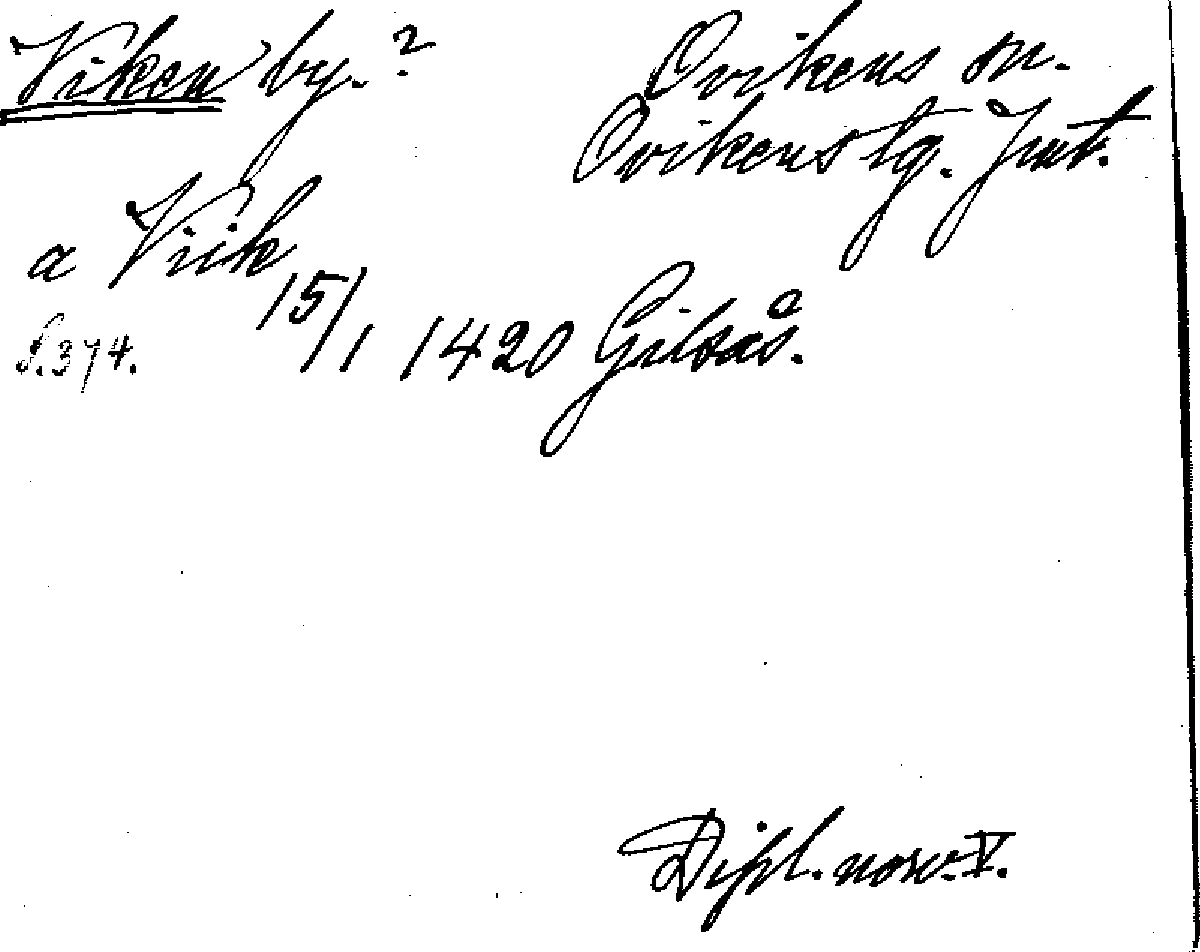 Viken by.?
Ovikens sn.
Ovikens tg. Jmt.
a Viik
15/1 1420 Gilsås.
S. 374.
Dipl. norv. V.